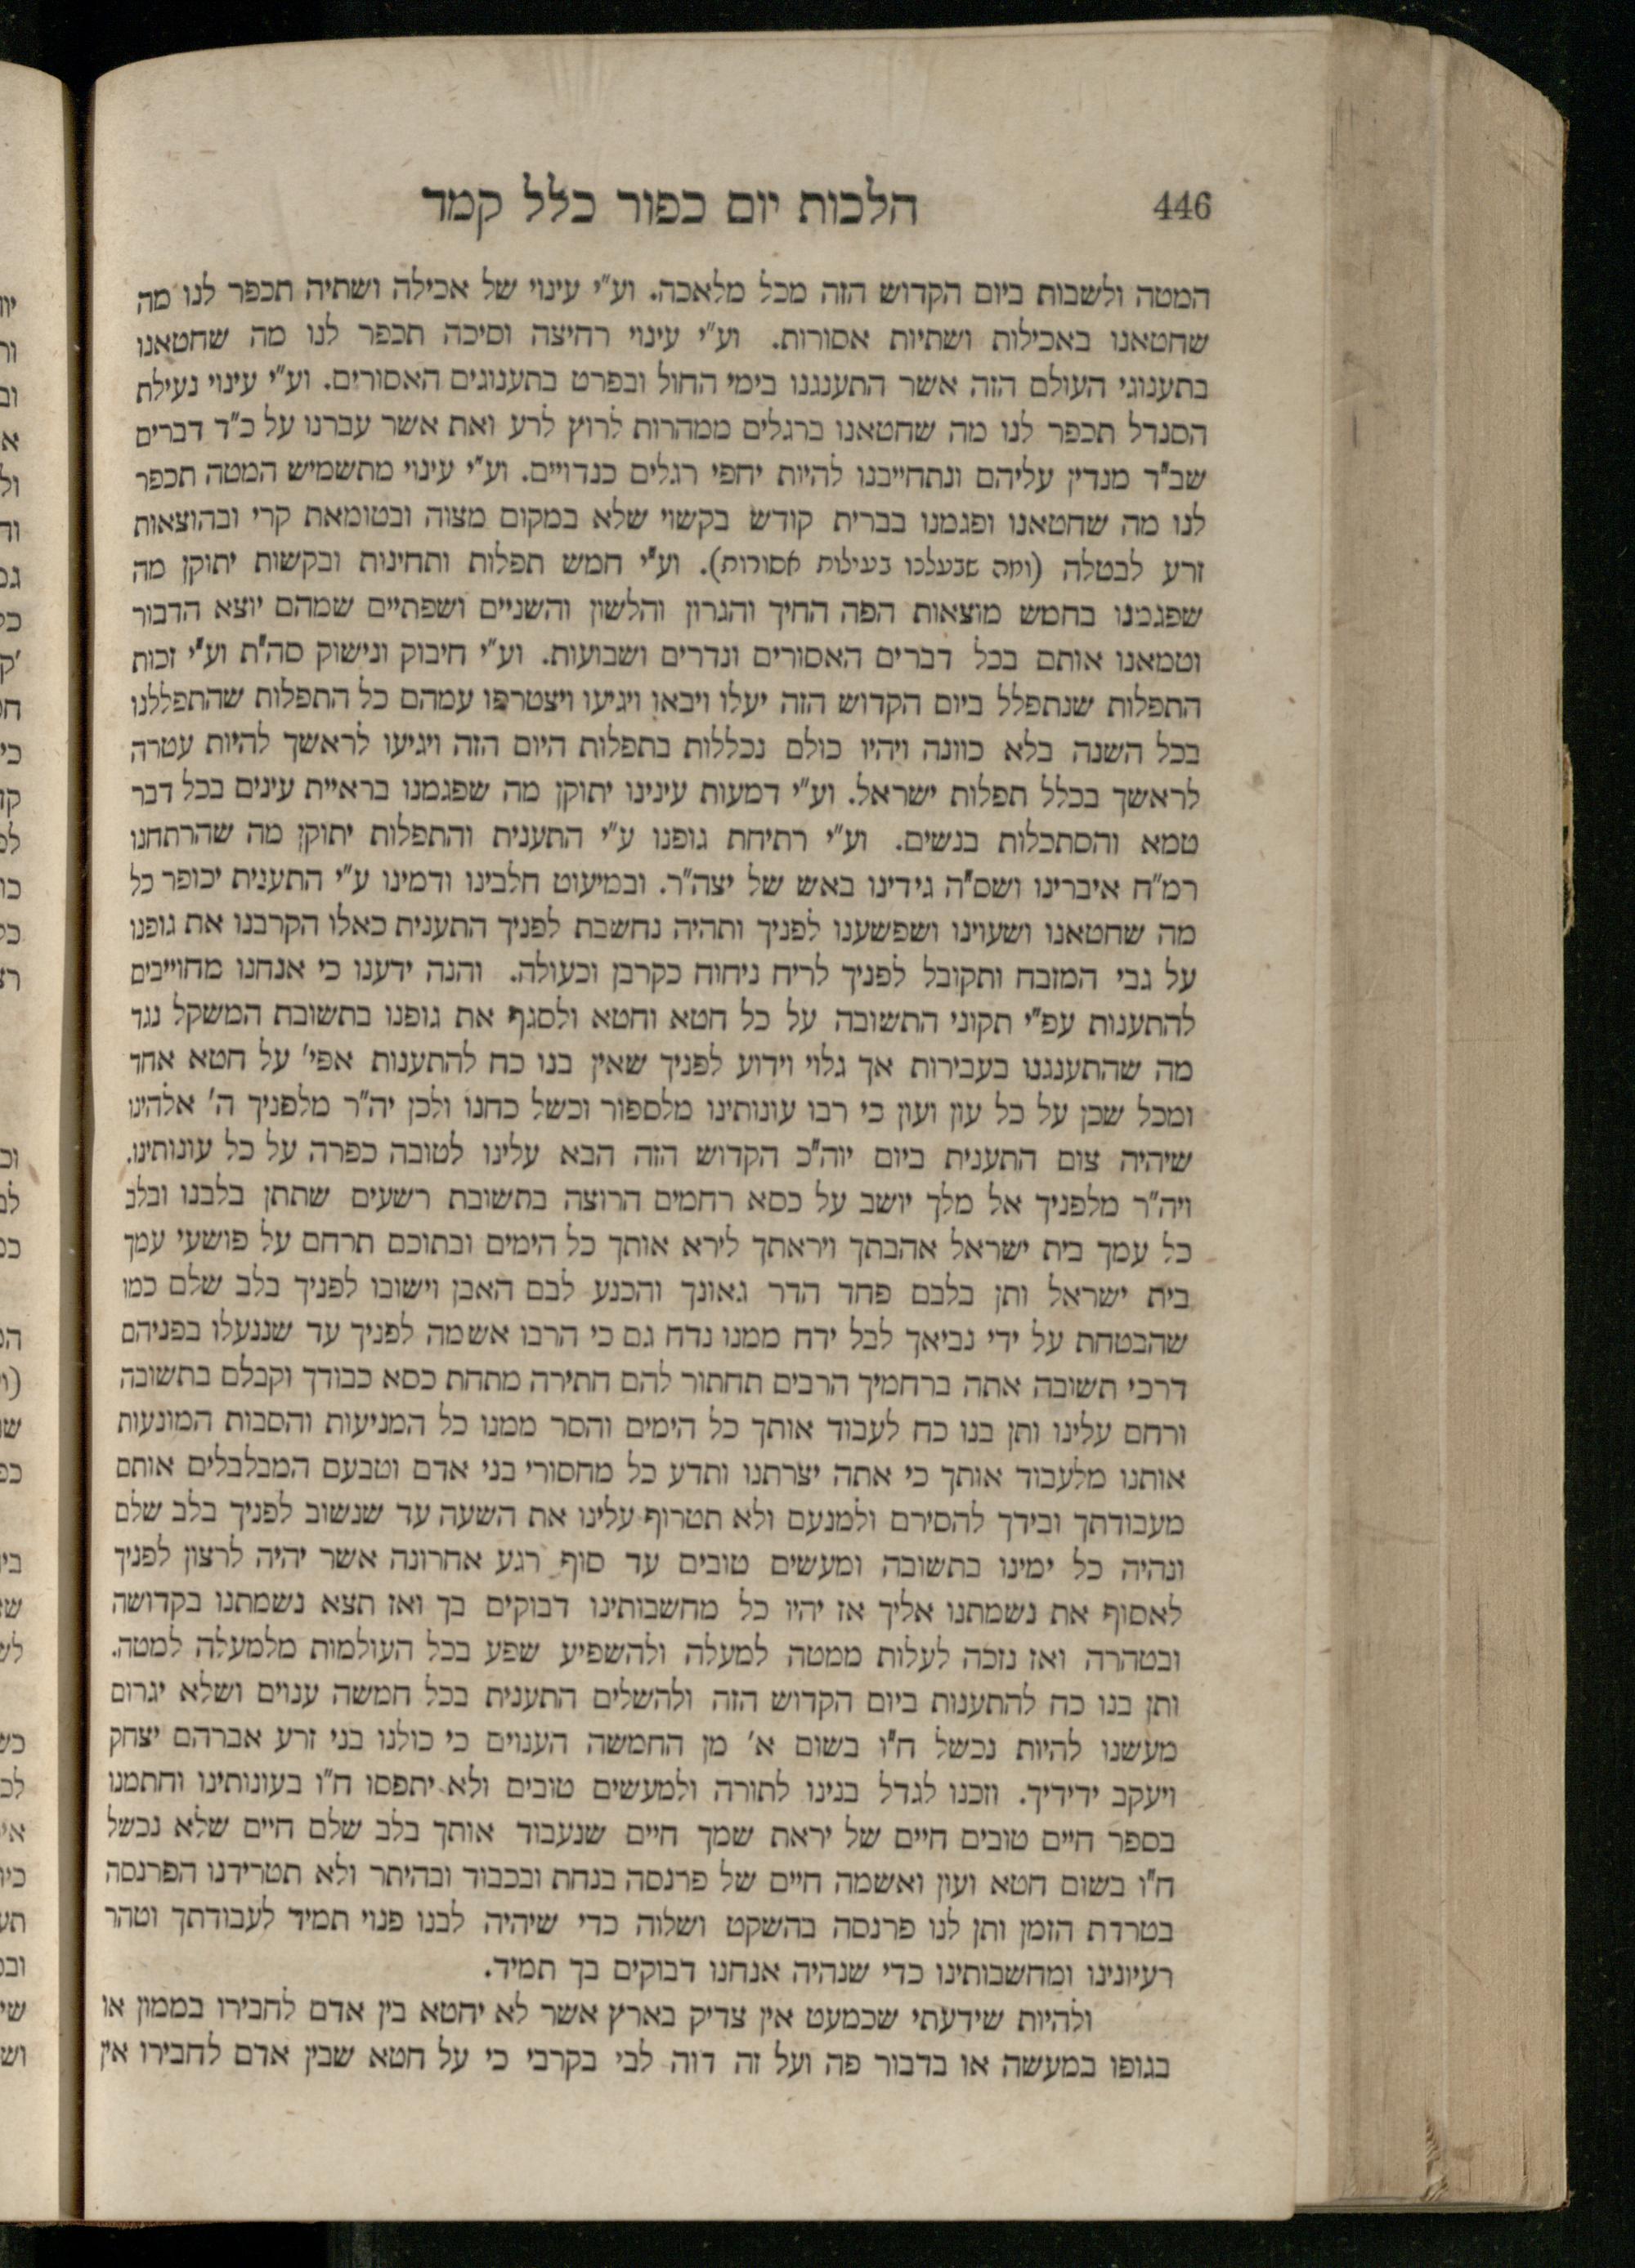 446 הלכות יום כפור כלל קמד
המטה ולשבות ביום הקדוש הזה מכל מלאכה. וע"י עינוי של אכילה ושתיה תכפר לנו מה
שחטאנו באכילות ושתיות אסורות. וע"י עינוי רחיצה וסיכה תכפר לנו מה שחטאנו
בתענוגי העולם הזה אשר התענגנו בימי החול ובפרט בתענוגים האסורים. וע"י עינוי נעילת
הסנדל תכפר לנו מה שחטאנו ברגלים ממהרות לרוץ לרע ואת אשר עברנו על כ"ד דברים
שב"ד מנדין עליהם ונתחייבנו להיות יחפי רגלים כנדויים. וע"י עינוי מתשמיש המטה תכפר
לנו מה שחטאנו ופגמנו בברית קודש בקשוי שלא במקום מצוה ובטומאת קרי ובהוצאות
זרע לבטלה (ומה שבעלנו בעילות אסורות). וע"י חמש תפלות ותחינות ובקשות יתוקן מה
שפגמנו בחמש מוצאות הפה החיך והגרון והלשון והשניים ושפתיים שמהם יוצא הדבור
וטמאנו אותם בכל דברים האסורים ונדרים ושבועות. וע"י חיבוק ונישוק סה"ת וע"י זכות
התפלות שנתפלל ביום הקדוש הזה יעלו ויבאו ויגיעו ויצטרפו עמהם כל התפלות שהתפללנו
בכל השנה בלא כוונה ויהיו כולם נכללות בתפלות היום הזה ויגיעו לראשך להיות עטרה
לראשך בכלל תפלות ישראל. וע"י דמעות עינינו יתוקן מה שפגמנו בראיית עינים בכל דבר
טמא והסתכלות בנשים. וע"י רתיחת גופנו ע"י התענית והתפלות יתוקן מה שהרתחנו
רמ"ח איברינו ושס"ה גידינו באש של יצה"ר. ובמיעוט חלבינו ודמינו ע"י התענית יכופר כל
מה שחטאנו ושעוינו ושפשענו לפניך ותהיה נחשבת לפניך התענית כאלו הקרבנו את גופנו
על גבי המזבח ותקובל לפניך לריח ניחוח כקרבן וכעולה. והנה ידענו כי אנחנו מחוייבים
להתענות עפ"י תקוני התשובה על כל חטא וחטא ולסגף את גופנו בתשובת המשקל נגד
מה שהתענגנו בעבירות אך גלוי וידוע לפניך שאין בנו כח להתענות אפי' על חטא אחד
ומכל שכן על כל עון ועון כי רבו עונותינו מלספור וכשל כחנו ולכן יה"ר מלפניך ה' אלהינו
שיהיה צום התענית ביום יוה"כ הקדוש הזה הבא עלינו לטובה כפרה על כל עונותינו.
ויה"ר מלפניך אל מלך יושב על כסא רחמים הרוצה בתשובת רשעים שתתן בלבנו ובלב
כל עמך בית ישראל אהבתך ויראתך לירא אותך כל הימים ובתוכם תרחם על פושעי עמך
בית ישראל ותן בלבם פחד הדר גאונך והכנע לבם האבן וישובו לפניך בלב שלם כמו
שהבטחת על ידי נביאך לבל ידח ממנו נדח גם כי הרבו אשמה לפניך עד שננעלו בפניהם
דרכי תשובה אתה ברחמיך הרבים תחתור להם חתירה מתחת כסא כבודך וקבלם בתשובה
ורחם עלינו ותן בנו כח לעבוד אותך כל הימים והסר ממנו כל המניעות והסבות המונעות
אותנו מלעבוד אותך כי אתה יצרתנו ותדע כל מחסורי בני אדם וטבעם המבלבלים אותם
מעבודתך ובידך להסירם ולמנעם ולא תטרוף עלינו את השעה עד שנשוב לפניך בלב שלם
ונהיה כל ימינו בתשובה ומעשים טובים עד סוף רגע אחרונה אשר יהיה לרצון לפניך
לאסוף את נשמתנו אליך אז יהיו כל מחשבותינו דבוקים בך ואז תצא נשמתנו בקדושה
ובטהרה ואז נזכה לעלות ממטה למעלה ולהשפיע שפע בכל העולמות מלמעלה למטה.
ותן בנו כח להתענות ביום הקדוש הזה ולהשלים התענית בכל חמשה ענוים ושלא יגרום
מעשנו להיות נכשל ח"ו בשום א' מן החמשה הענוים כי כולנו בני זרע אברהם יצחק
ויעקב ידידיך. וזכנו לגדל בנינו לתורה ולמעשים טובים ולא יתפסו ח"ו בעונותינו וחתמנו
בספר חיים טובים חיים של יראת שמך חיים שנעבוד אותך בלב שלם חיים שלא נכשל
ח"ו בשום חטא ועון ואשמה חיים של פרנסה בנחת ובכבוד ובהיתר ולא תטרידנו הפרנסה
בטרדת הזמן ותן לנו פרנסה בהשקט ושלוה כדי שיהיה לבנו פנוי תמיד לעבודתך וטהר
רעיונינו ומחשבותינו כדי שנהיה אנחנו דבוקים בך תמיד.
ולהיות שידעתי שכמעט אין צדיק בארץ אשר לא יחטא בין אדם לחבירו בממון או
בגופו במעשה או בדבור פה ועל זה דוה לבי בקרבי כי על חטא שבין אדם לחבירו אין